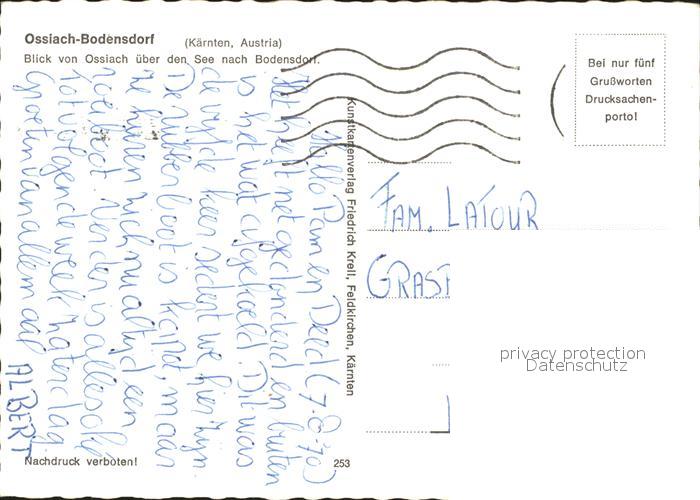 Ossiach-Bodensdorf (Kärnten, Austria)
Blick von Ossiach über den See nach Bodensdorf.
Bei nur fünf
Grußworten
Drucksachen-
porto!
Kunstkartenverlag Friedrich Krell, Feldkirchen, Kärnten
Hallo Pam en Deed (7-8-70)
Het heeft net gedonderd en buiten
is het wat afgekoeld. Dit was
de vierde keer sedert we hier zijn.
De rubberboot is klein, maar
we kunnen toch nu altijd een
Verder is alles
volgende week
Groeten van allemaal
ALBERT
FAM. LATOUR
GRAST
privacy protection
Datenschutz
Nachdruck verboten!
253